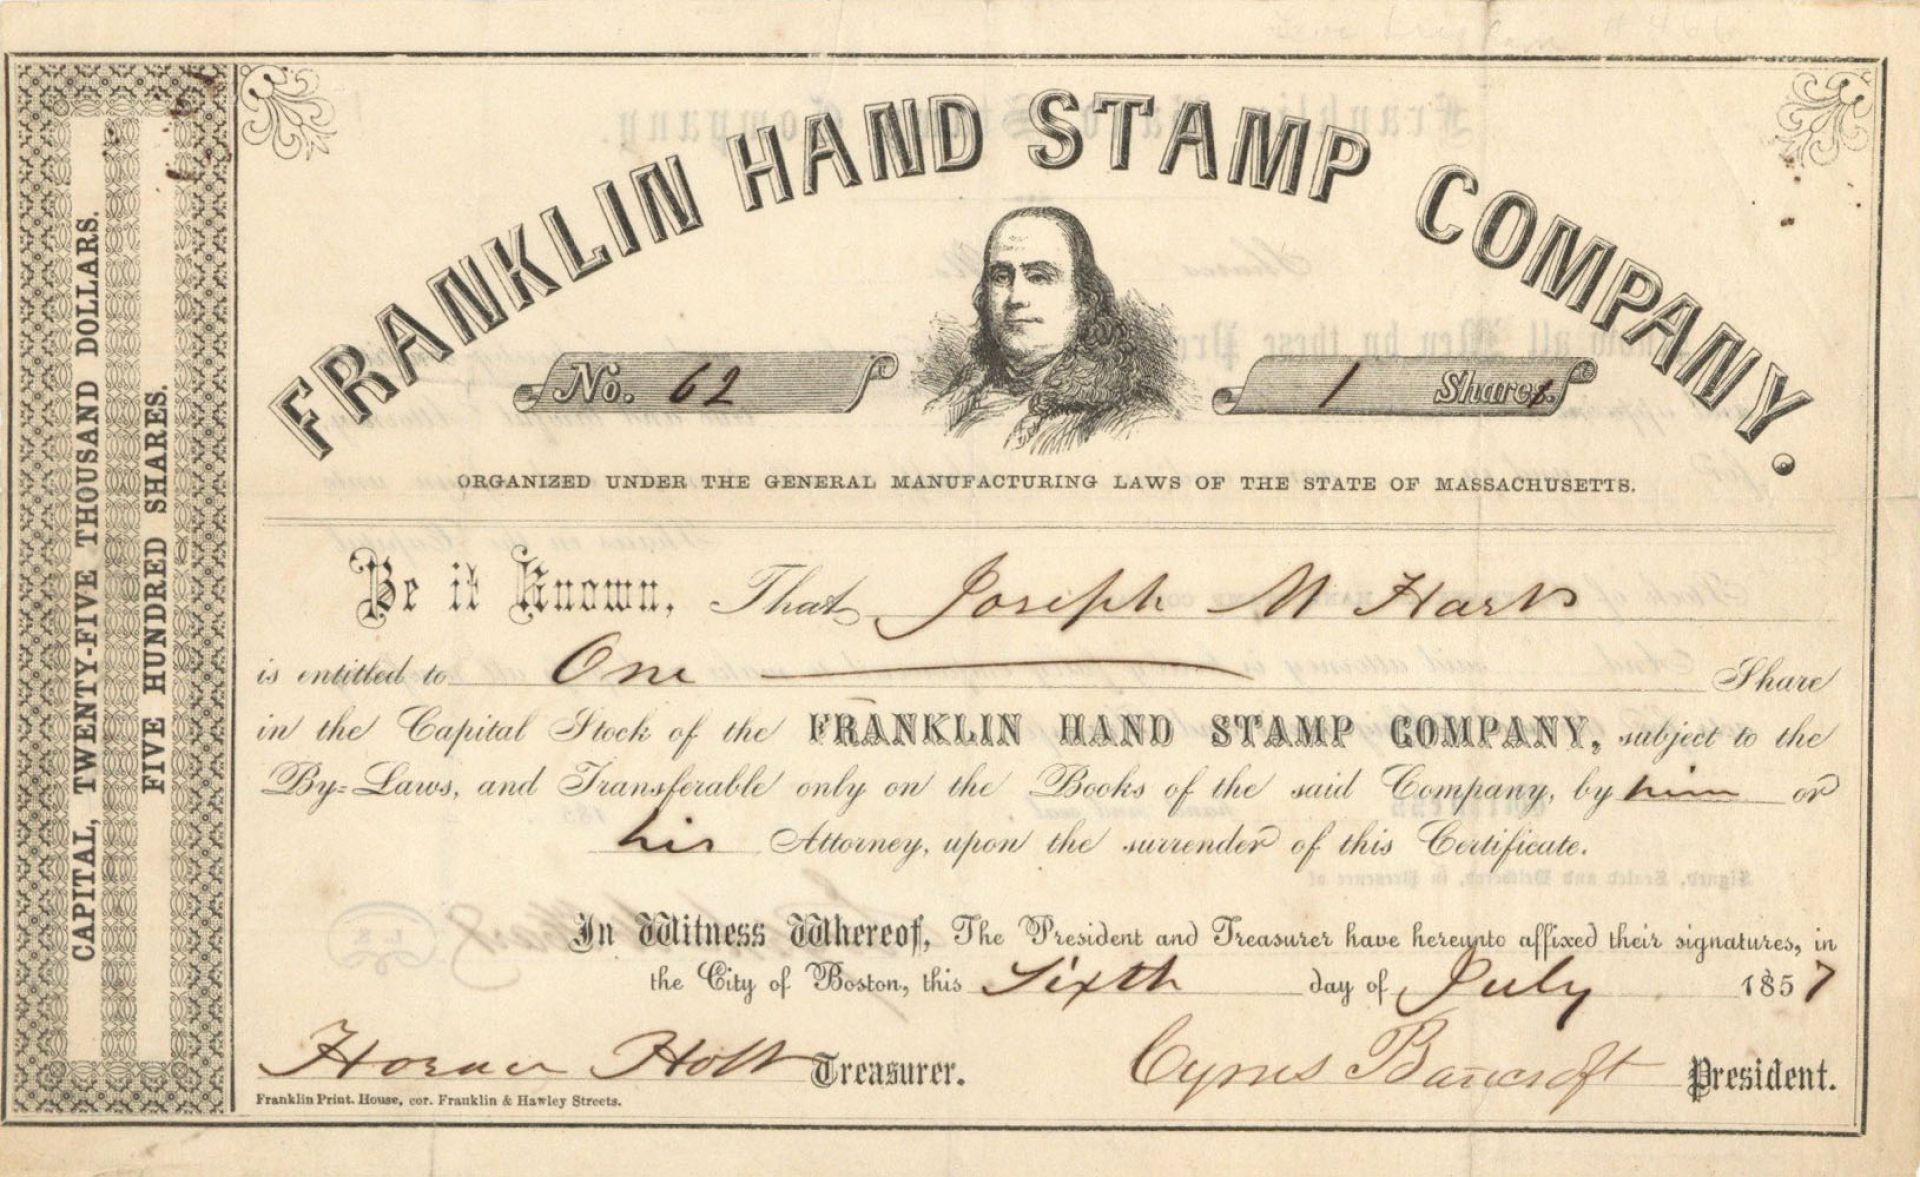 FRANKLIN HAND STAMP COMPANY.
No. 62
1 Shares.
ORGANIZED UNDER THE GENERAL MANUFACTURING LAWS OF THE STATE OF MASSACHUSETTS.
CAPITAL, TWENTY-FIVE THOUSAND DOLLARS.
FIVE HUNDRED SHARES.
Be it Known, That Joseph M
is entitled to One Share
in the Capital Stock of the FRANKLIN HAND STAMP COMPANY, subject to the
By-Laws, and Transferable only on the Books of the said Company, by him or
his Attorney, upon the surrender of this Certificate.
In Witness Whereof, The President and Treasurer have hereunto affixed their signatures, in
the City of Boston, this Sixth day of July 1857
Horace Holt Treasurer.
Cyrus Bancroft President.
Franklin Print. House, cor. Franklin & Hawley Streets.